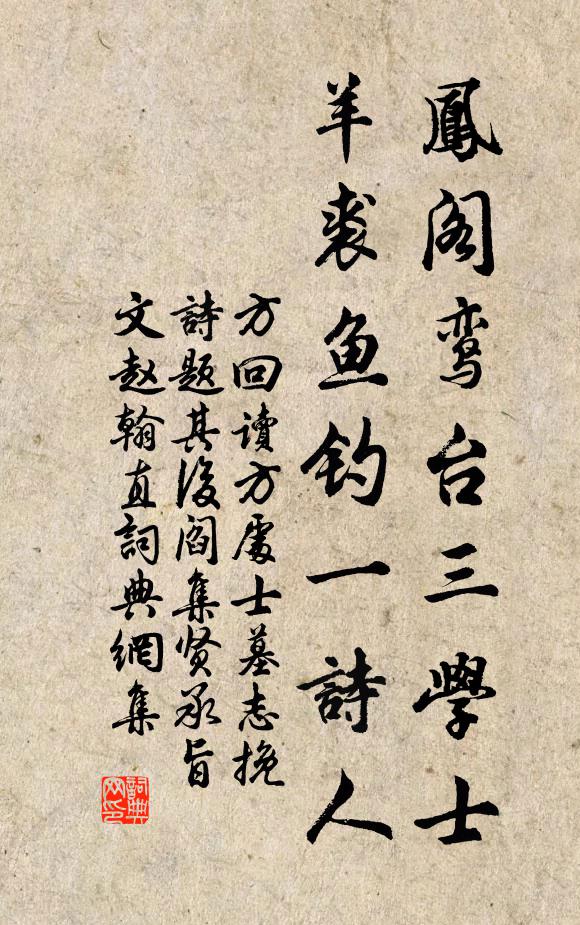 鳳阁鸾台三學士
羊裘鱼钓一詩人
方回讀方處士墓志挽
詩题其後阎集贤承旨
文赵翰直詞典網集
詞典网印